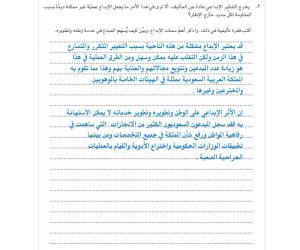 ٢. يخرج التفكير الإبداعي عادة عن المألوف، ألا ترى في هذا الأمر ما يجعل الإبداع عملية غير ممكنة دومًا بسبب
المقاومة لكل جديد، خارج الإطار؟
اكتب فقرة تأليفية في ذلك، واذكر أهم سمات الإبداع، وبيّن كيف يسهم المبدع في خدمة وطنه وتطويره.
قد يعتبر الإبداع مشكلة من هذه الناحية بسبب التغيير المتكرر والتسارع
في هذا الزمن ولكن التغلب عليه ممكن وسهل ومن الطرق العملية في هذا
هو زيادة عدد المبدعين وتنويع مجالاتهم والعناية بهم وهذا ما تقوم به
المملكة العربية السعودية ممثلة في الهيئات الخاصة بالموهوبين
والمخترعين وغيرها
إن الأثر الإبداعي على الوطن وتطويره وتطوير خدماته لا يمكن الاستهانة
به فقد سجل المبدعون السعوديون الكثير من الانجازات التي ساهمت في
رفاهية المواطن ورفع شأن المملكة في جميع التخصصات ومن بينها
تطبيقات الوزارات الحكومية واختراع الأدوية والقيام بالعمليات
الجراحية الصعبة .